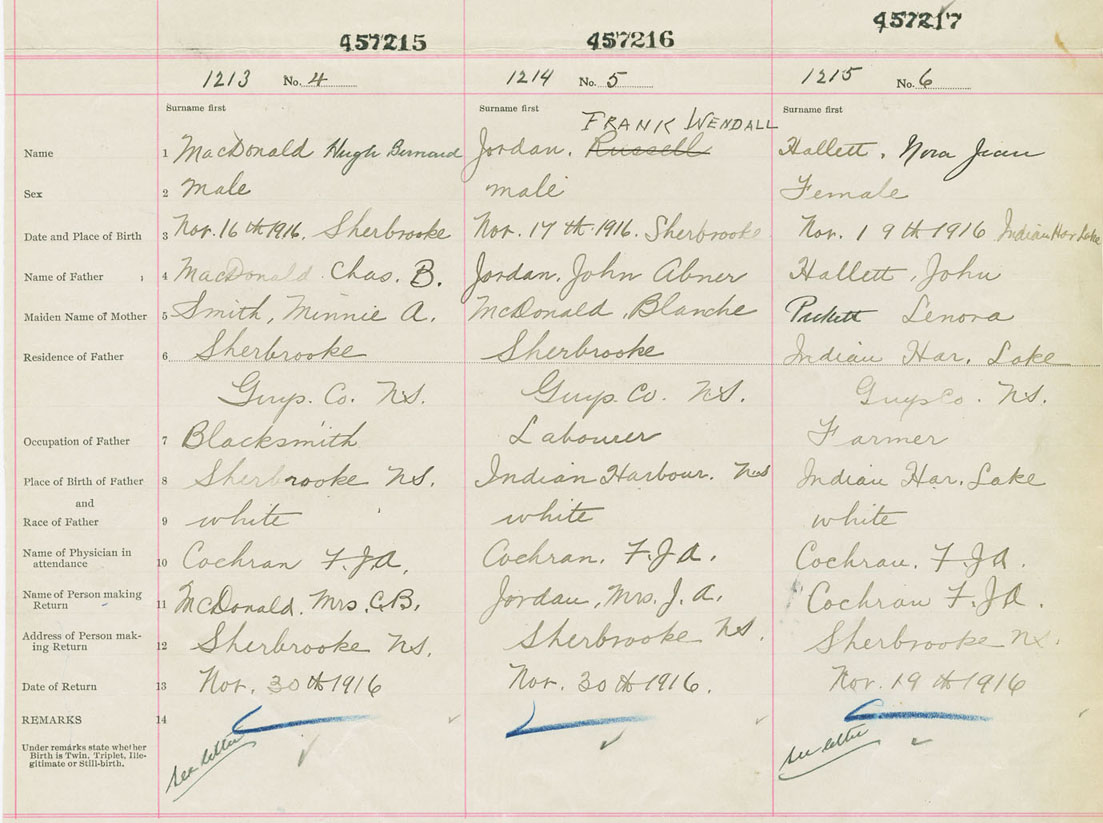 457215 457216 457217
1213 No. 4 1214 No. 5 1215 No. 6
Surname first Surname first Surname first
FRANK WENDALL
Name 1 MacDonald Hugh Bernard Jordan, Russell Hallett, Nora Jean
Sex 2 male male Female
Date and Place of Birth 3 Nov. 16th 1916, Sherbrooke Nov. 17th 1916. Sherbrooke Nov. 19th 1916 Indian Har Lake
Name of Father 4 MacDonald Chas. B. Jordan, John Abner Hallett, John
Maiden Name of Mother 5 Smith, Minnie A. McDonald, Blanche Lenora
Residence of Father 6 Sherbrooke Sherbrooke Indian Har. Lake
Guys. Co. N.S. Guys Co. N.S. Guys Co. N.S.
Occupation of Father 7 Blacksmith Labourer Farmer
Place of Birth of Father 8 Sherbrooke N.S. Indian Harbour. N.S Indian Har. Lake
and
Race of Father 9 white white white
Name of Physician in
attendance 10 Cochran F.J.A. Cochran, F.J.A. Cochran, F.J.A.
Name of Person making
Return 11 McDonald, Mrs. C.B. Jordan, Mrs. J.A. Cochran F.J.A.
Address of Person mak-
ing Return 12 Sherbrooke N.S. Sherbrooke N.S. Sherbrooke N.S.
Date of Return 13 Nov. 30th 1916 Nov. 30th 1916. Nov. 19th 1916
REMARKS 14
Under remarks state whether
Birth is Twin, Triplet, Ille-
gitimate or Still-birth.
see letter see letter